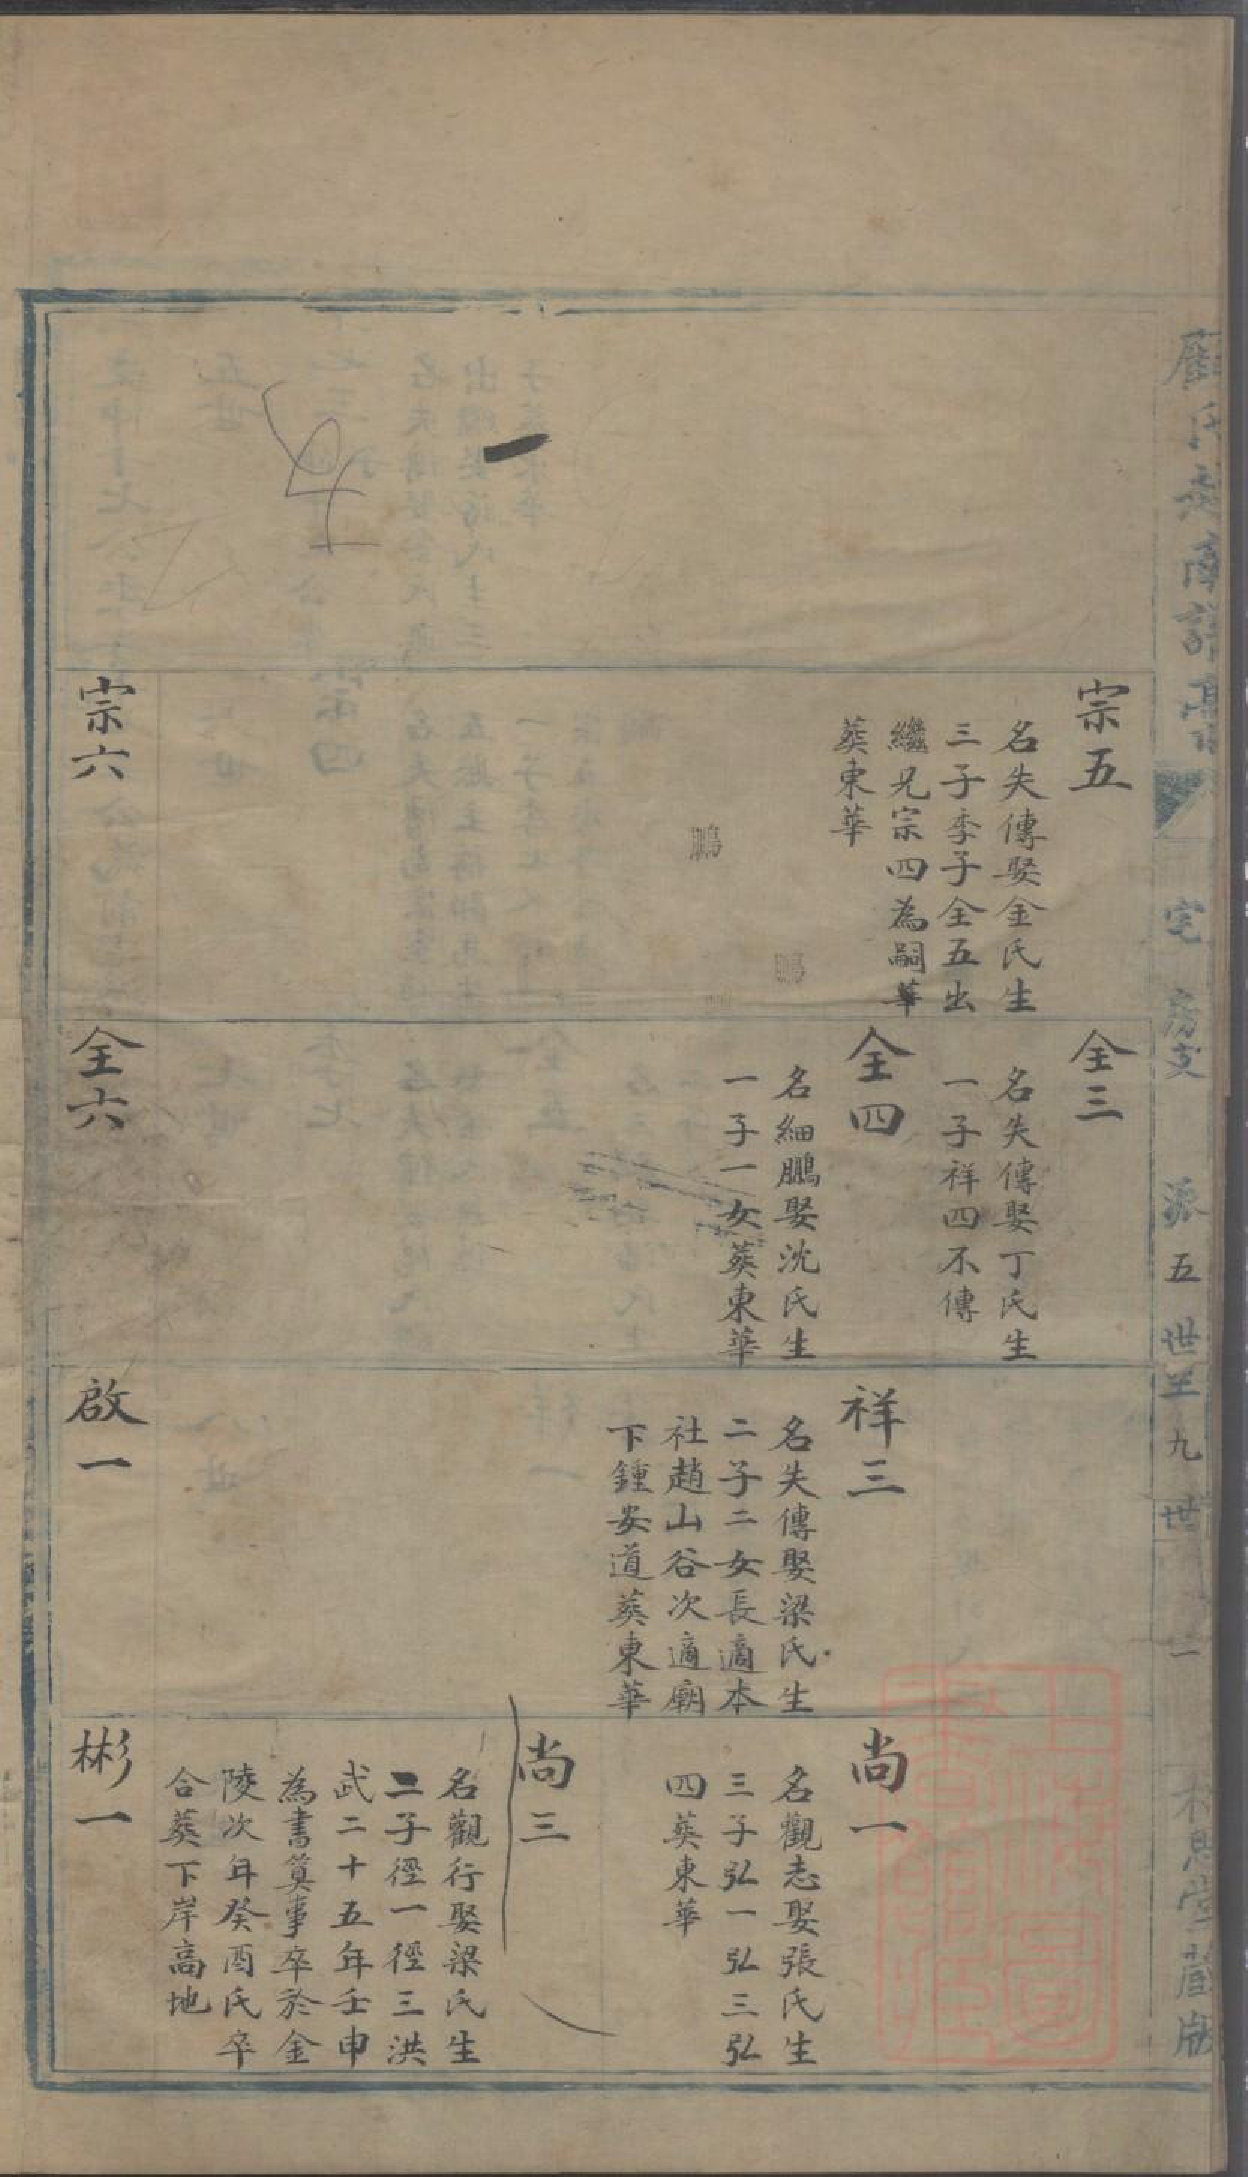 宗五
名失傳娶金氏生
三子季子全五出
繼兄宗四為嗣華
葬東華
鵬
鵬
宗六
全三
名失傳娶丁氏生
一子祥四不傳
全四
名細鵬娶沈氏生
一子一女葬東華
全六
祥三
名失傳娶梁氏生
二子二女長適本
社趙山谷次適廟
下鍾安道葬東華
啟一
尚一
名觀志娶張氏生
三子弘一弘三弘
四葬東華
尚三
名觀行娶梁氏生
二子徑一徑三洪
武二十五年壬申
為書算事卒於金
陵次年癸酉氏卒
合葬下岸高地
彬一
宅 房支 派五世至九世 二